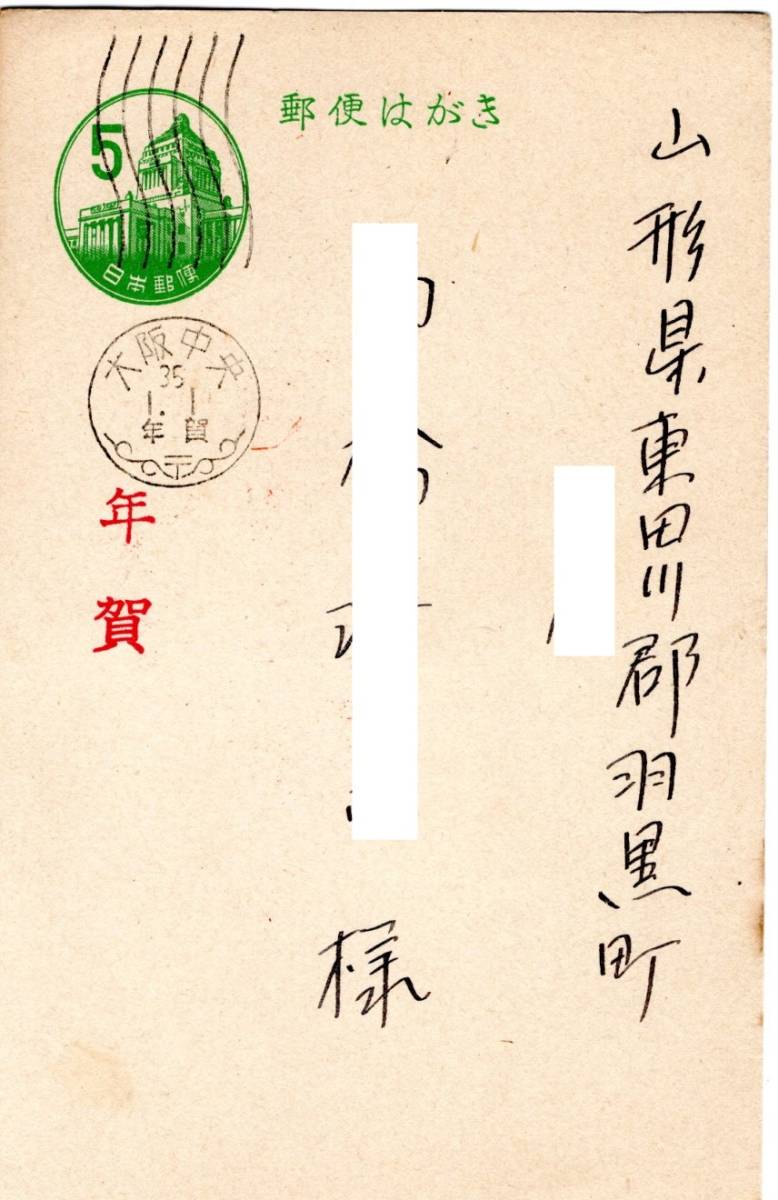 郵便はがき
5
日本郵便
大阪中央
35
1.1
年賀
年賀
山形県東田川郡羽黒町
様